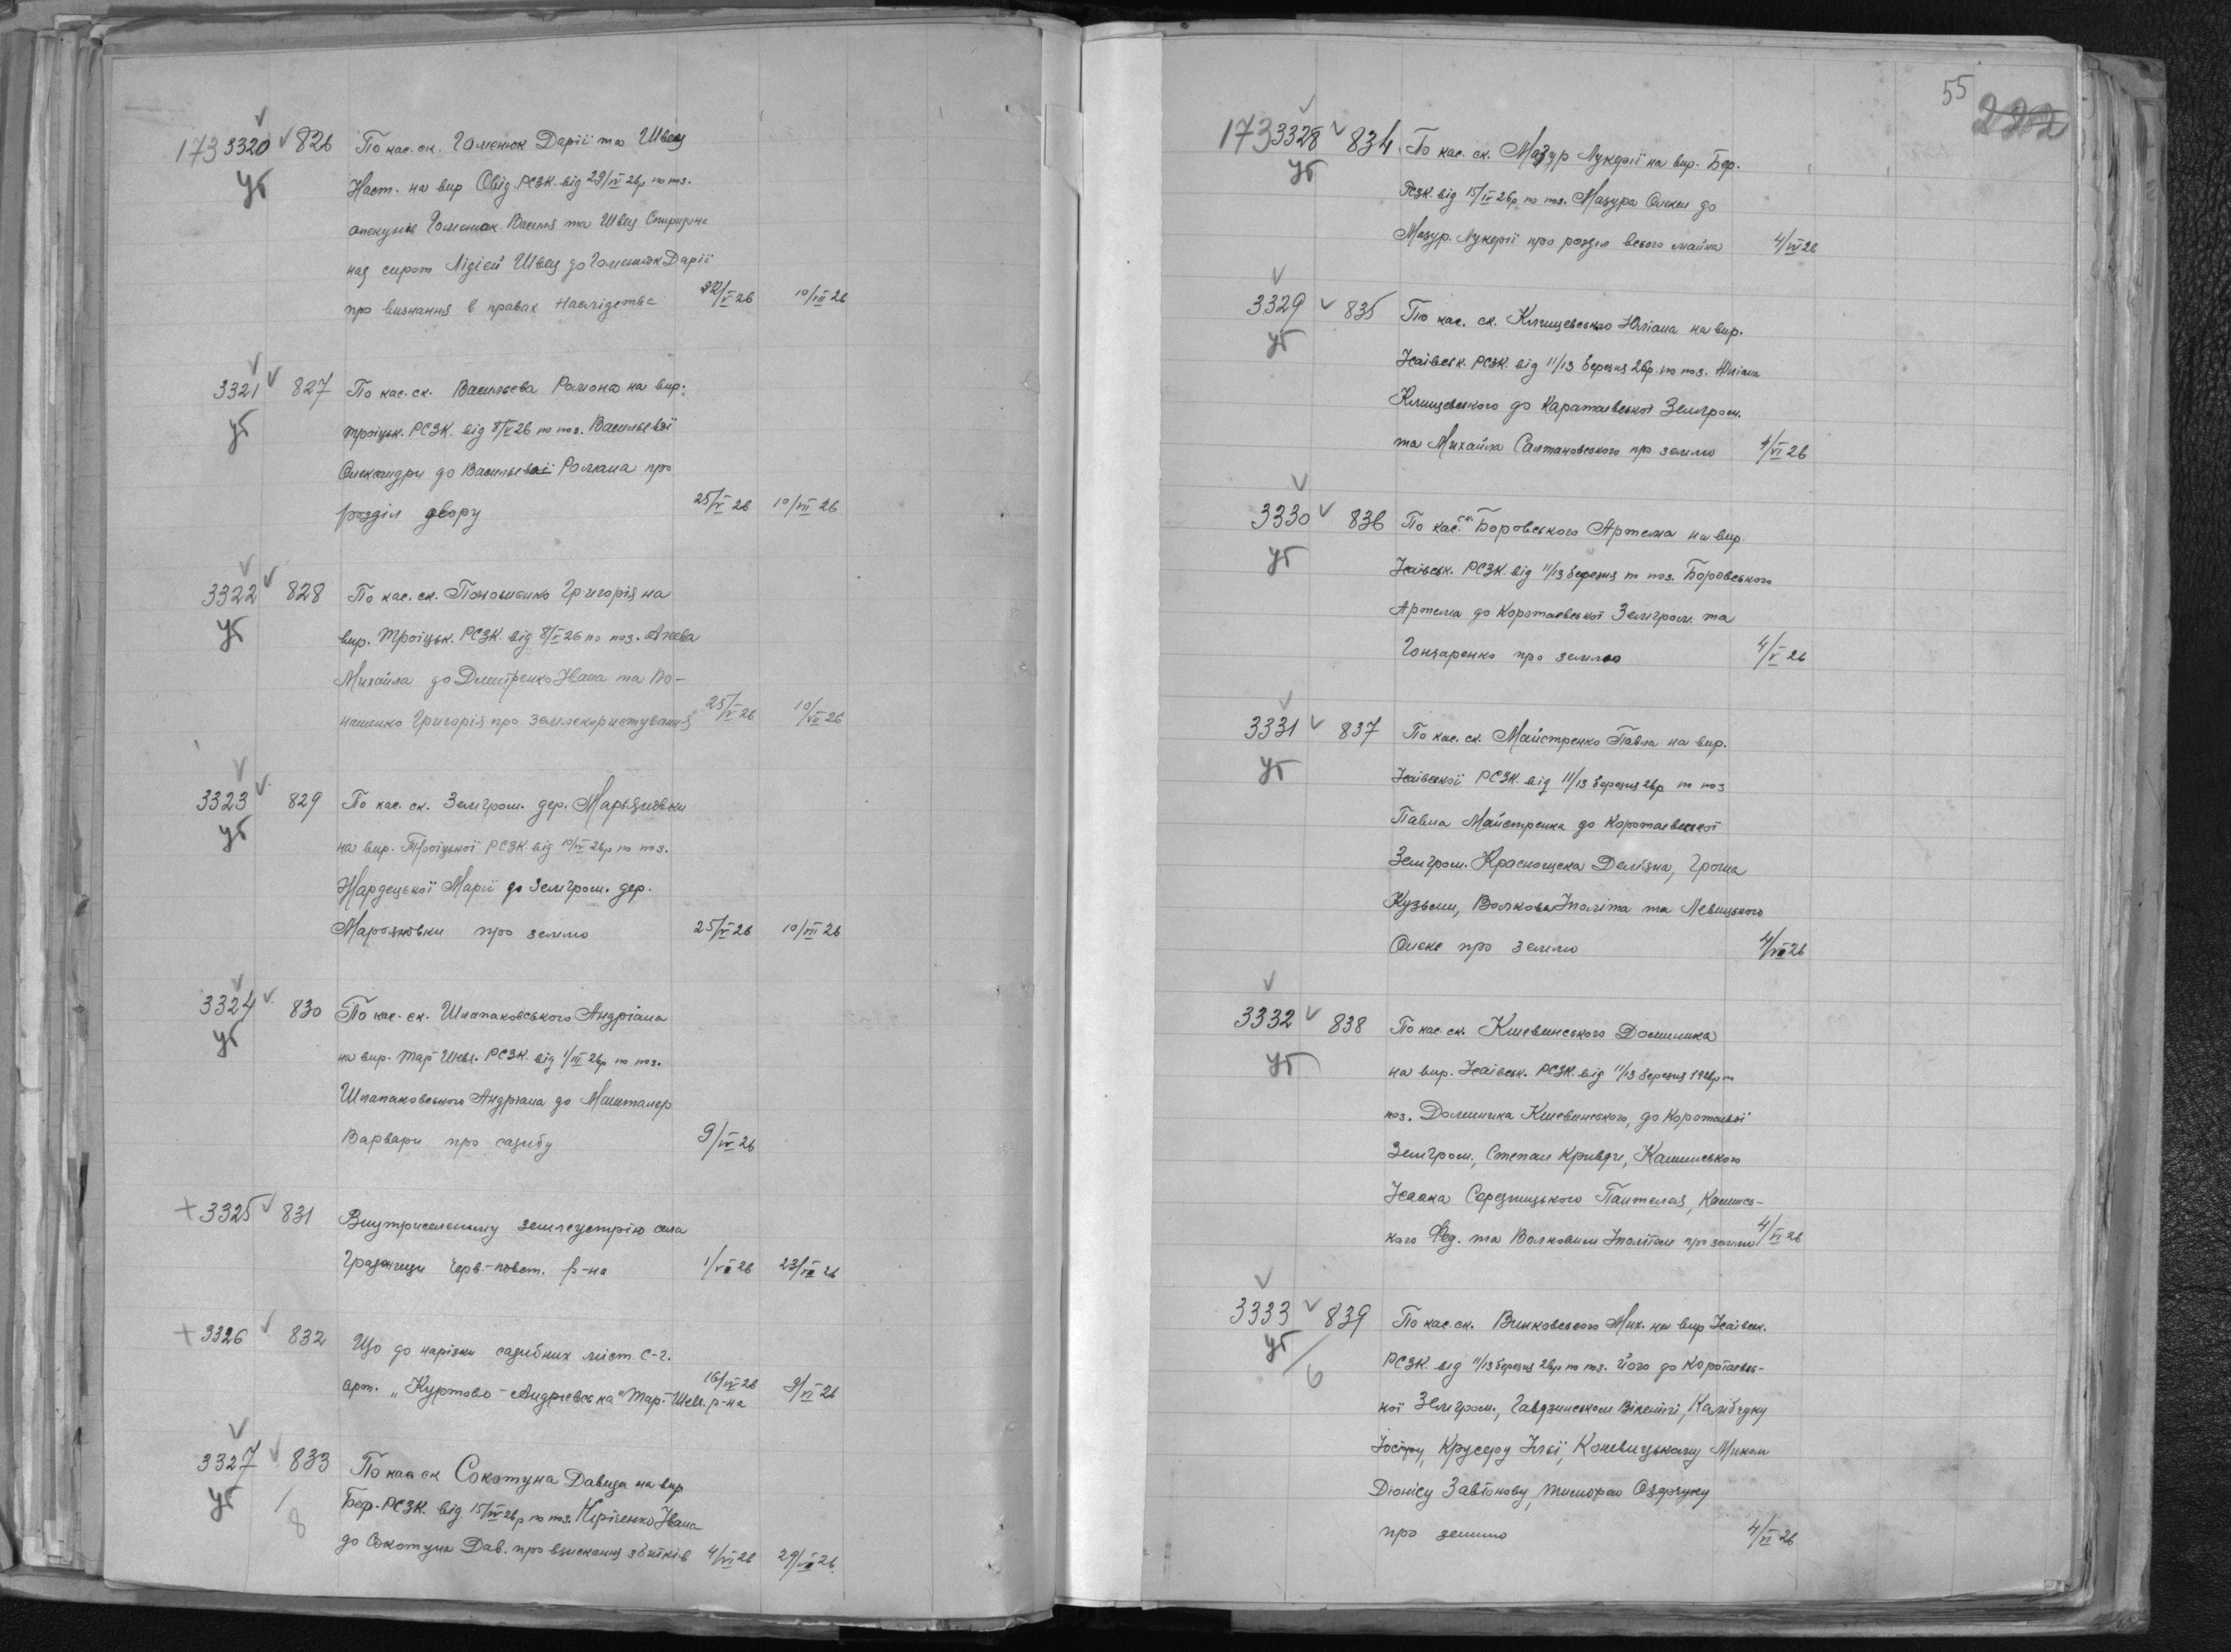 173 3320 826 По кас. ск. Гоменюк Дарії та Швец
уг Наст. на вир Овід. РСЗК. від 29/IV 26р по поз.
опекунів Гоменюк Василя та Швец Спиридона
над сирот Лідією Швец до Гоменюк Дарії
про визнання в правах наслідства 22/V 26 10/VII 26
3321 827 По кас. ск. Васильєва Романа на вир.
уг Троіцьк. РСЗК. від 8/V 26 по поз. Васильєвої
Олександри до Васильєва Романа про
розділ двору 25/V 26 10/VII 26
3322 828 По кас. ск. Поношенко Григорія на
уг вир. Троіцьк. РСЗК. від 8/V 26 по поз. Агеева
Михайла до Дмитренко Івана та По-
ношенко Григорія про землекористування 25/V 26 10/VII 26
3323 829 По кас. ск. Земгром. дер. Марьяновки
уг на вир. Троіцької РСЗК. від 10/IV 26р по поз.
Жардецької Марії до Земгром. дер.
Марьяновки про землю 25/V 26 10/VII 26
3324 830 По кас. ск. Шпаковського Андріана
уг на вир. Тар Шевч. РСЗК. від 1/III 26р по поз.
Андріана до Машталер
Варвари про садибу 9/IV 26
+ 3325 831 Внутриселенному землеустрію села
Граданици Черв.-повст. р-на 1/VI 26 23/VII 26
+ 3326 832 Що до нарізки садибних міст с-г.
арт. „Куртово-Андріевська" Тар-Шевч. р-на 16/IV 26 9/VI 26
3327 833 По кас ск Сокотуна Давида на вир
уг 1/8 Бер. РСЗК. від 15/IV 26р по поз. Кіріченко Івана
до Сокотуна Дав. про взискання збитків 4/VI 26 29/VII 26.
55
222
173 3328 834 По кас. ск. Мазур Лукерії на вир. Бер.
уг РСЗК. від 15/IV 26р по поз. Мазура Олекси до
Мазур. Лукерії про розділ всього майна 4/VI 26
3329 835 По кас. ск. Клищевського Юліана на вир.
уг Ісаівськ. РСЗК. від 11/13 березня 26р. по поз. Юліана
Клищевського до Каратаевської Земгром.
та Михайла Салтановського про землю 4/VI 26
3330 836 По кас. ск. Боровського Артема на вир.
уг Ісаівськ. РСЗК від 11/13 березня по поз. Боровського
Артема до Коротаевської Земгром. та
Гонзаренко про землю 4/V 26
3331 837 По кас. ск. Майстренко Павла на вир.
уг Ісаівської РСЗК. від 11/13 березня 26р по поз
Павла Майстренка до Коротаевської
Земгром. Краснощека Демяна, Гроша
Кузьми, Волкова Іполіта та Левицького
Олекс про землю 4/VI 26
3332 838 По кас. ск. Клевинського Доминика
уг на вир. Ісаівськ. РСЗК. від 11/13 березня 1926р по
поз. Доминика Клевинського, до Коротаевої
Земгром., Степан Кривда, Каминського
Ісаака Середницького Пантелея, Каминсь-
кого Фед. та Волковим Іполітом про землю 4/VI 26
3333 839 По кас. ск. Винковського Мих. на вир Ісаівськ.
уг /6 РСЗК. від 11/13 березня 26р по поз. його до Коротаевсь-
кої Земгром., Вікентії,
Йосіпу, Ільї, Коневицькому Микол
Діонісу Завтонову, Тимофію
про землю 4/VI 26